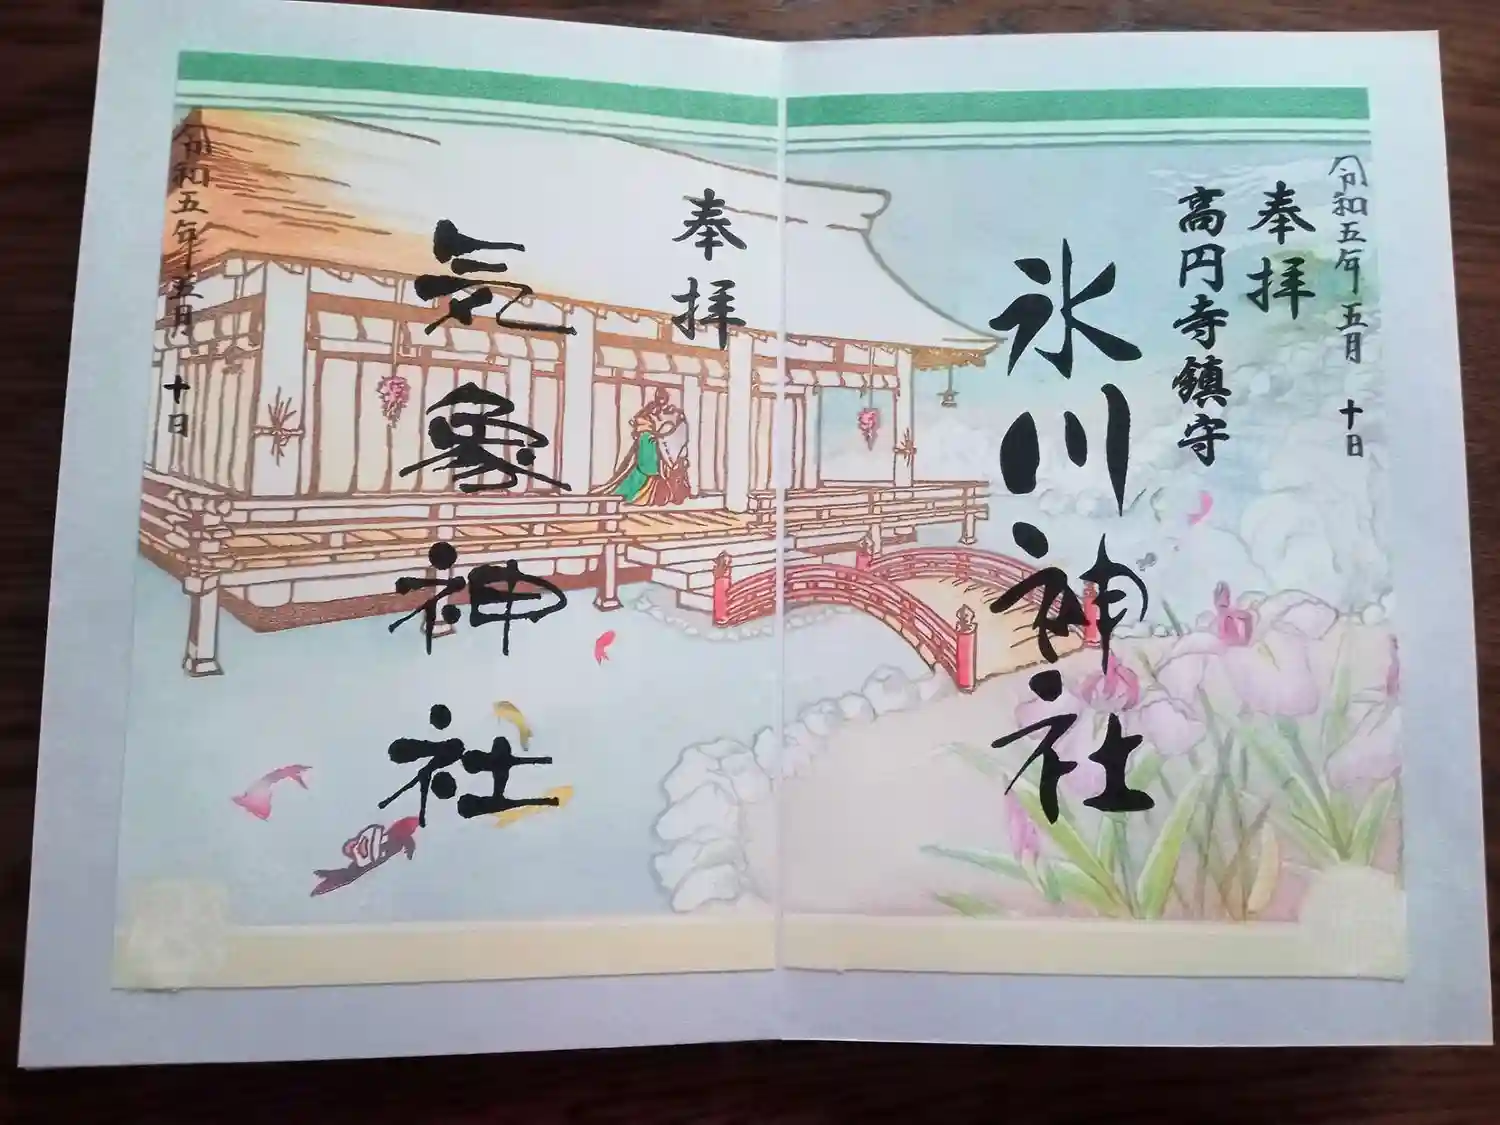 令和五年五月十日
奉拝
高円寺鎮守
氷川神社
奉拝
気象神社
令和五年五月十日